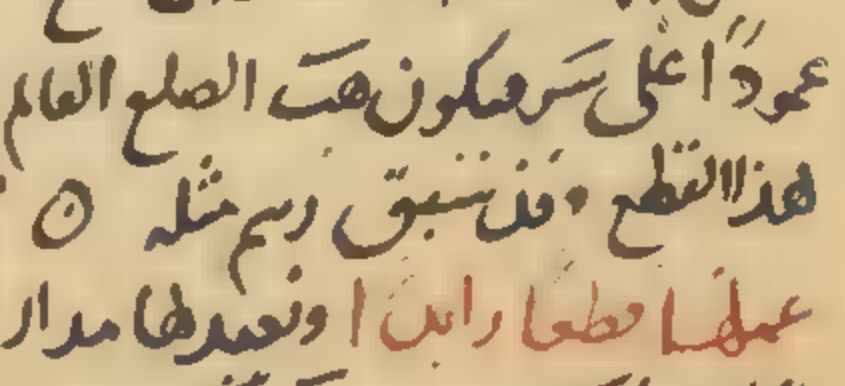 عمودًا على سَر فيكون هَت الضلع القائم
هذا القطع وقد سبق رسم مثله
عملها قطعًا زايدًا ونعيدها مدار